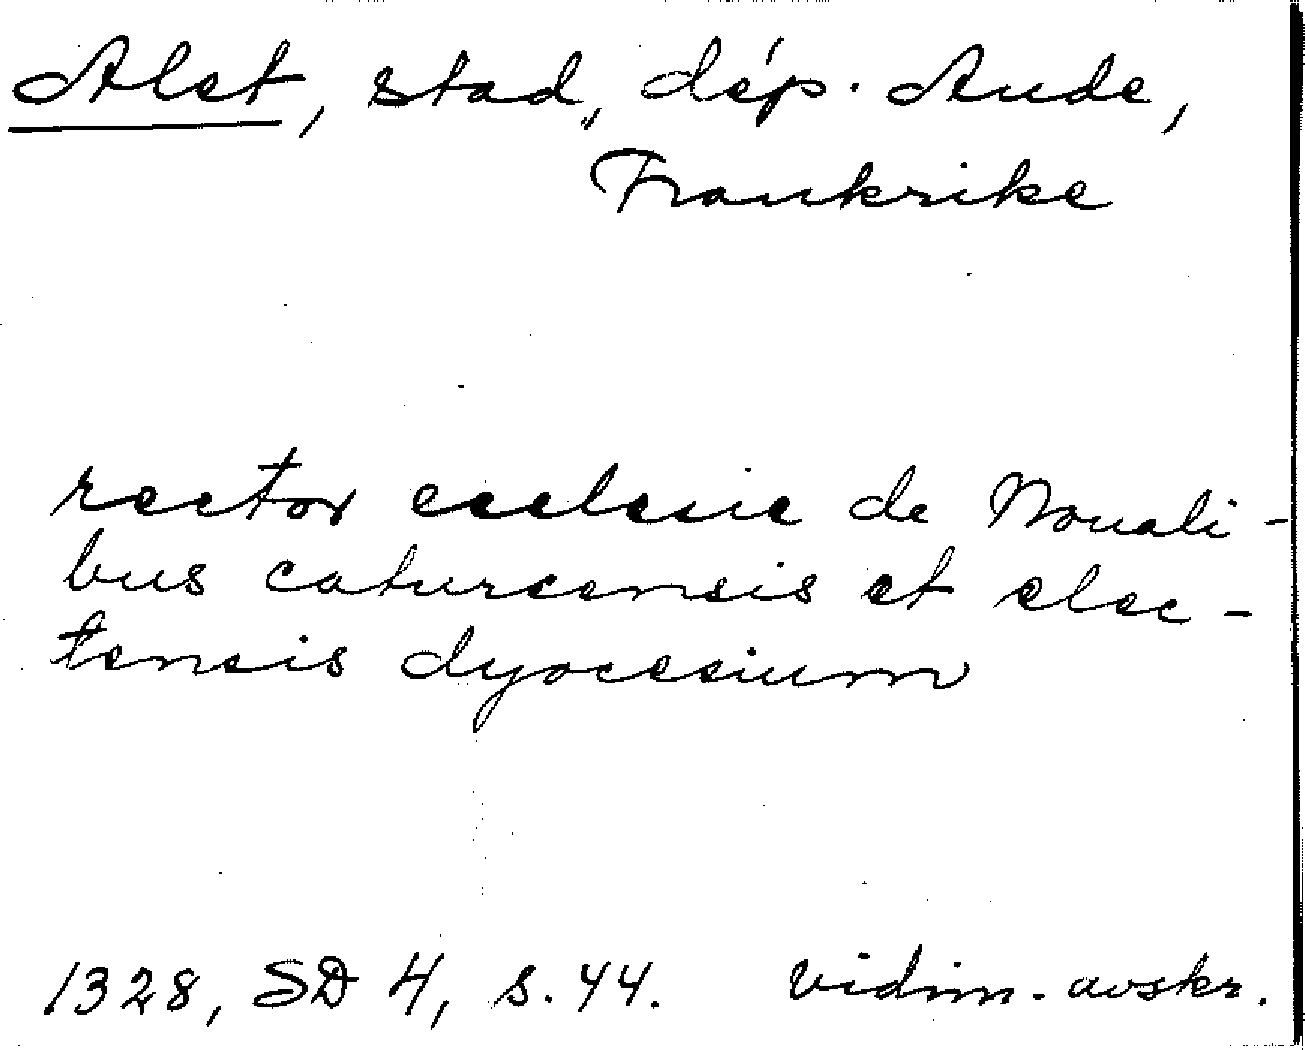 Alet, stad, dép. Aude,
Frankrike
rector ecclesie de Nouali-
bus caturcensis et elec-
tensis dyocesium
1328, SD 4, s. 44. vidim. avskr.